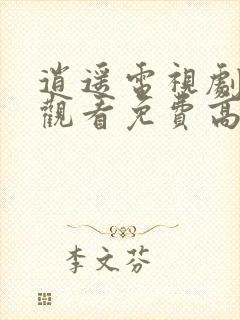 逍遥電視劇
觀看免費高
李文芬